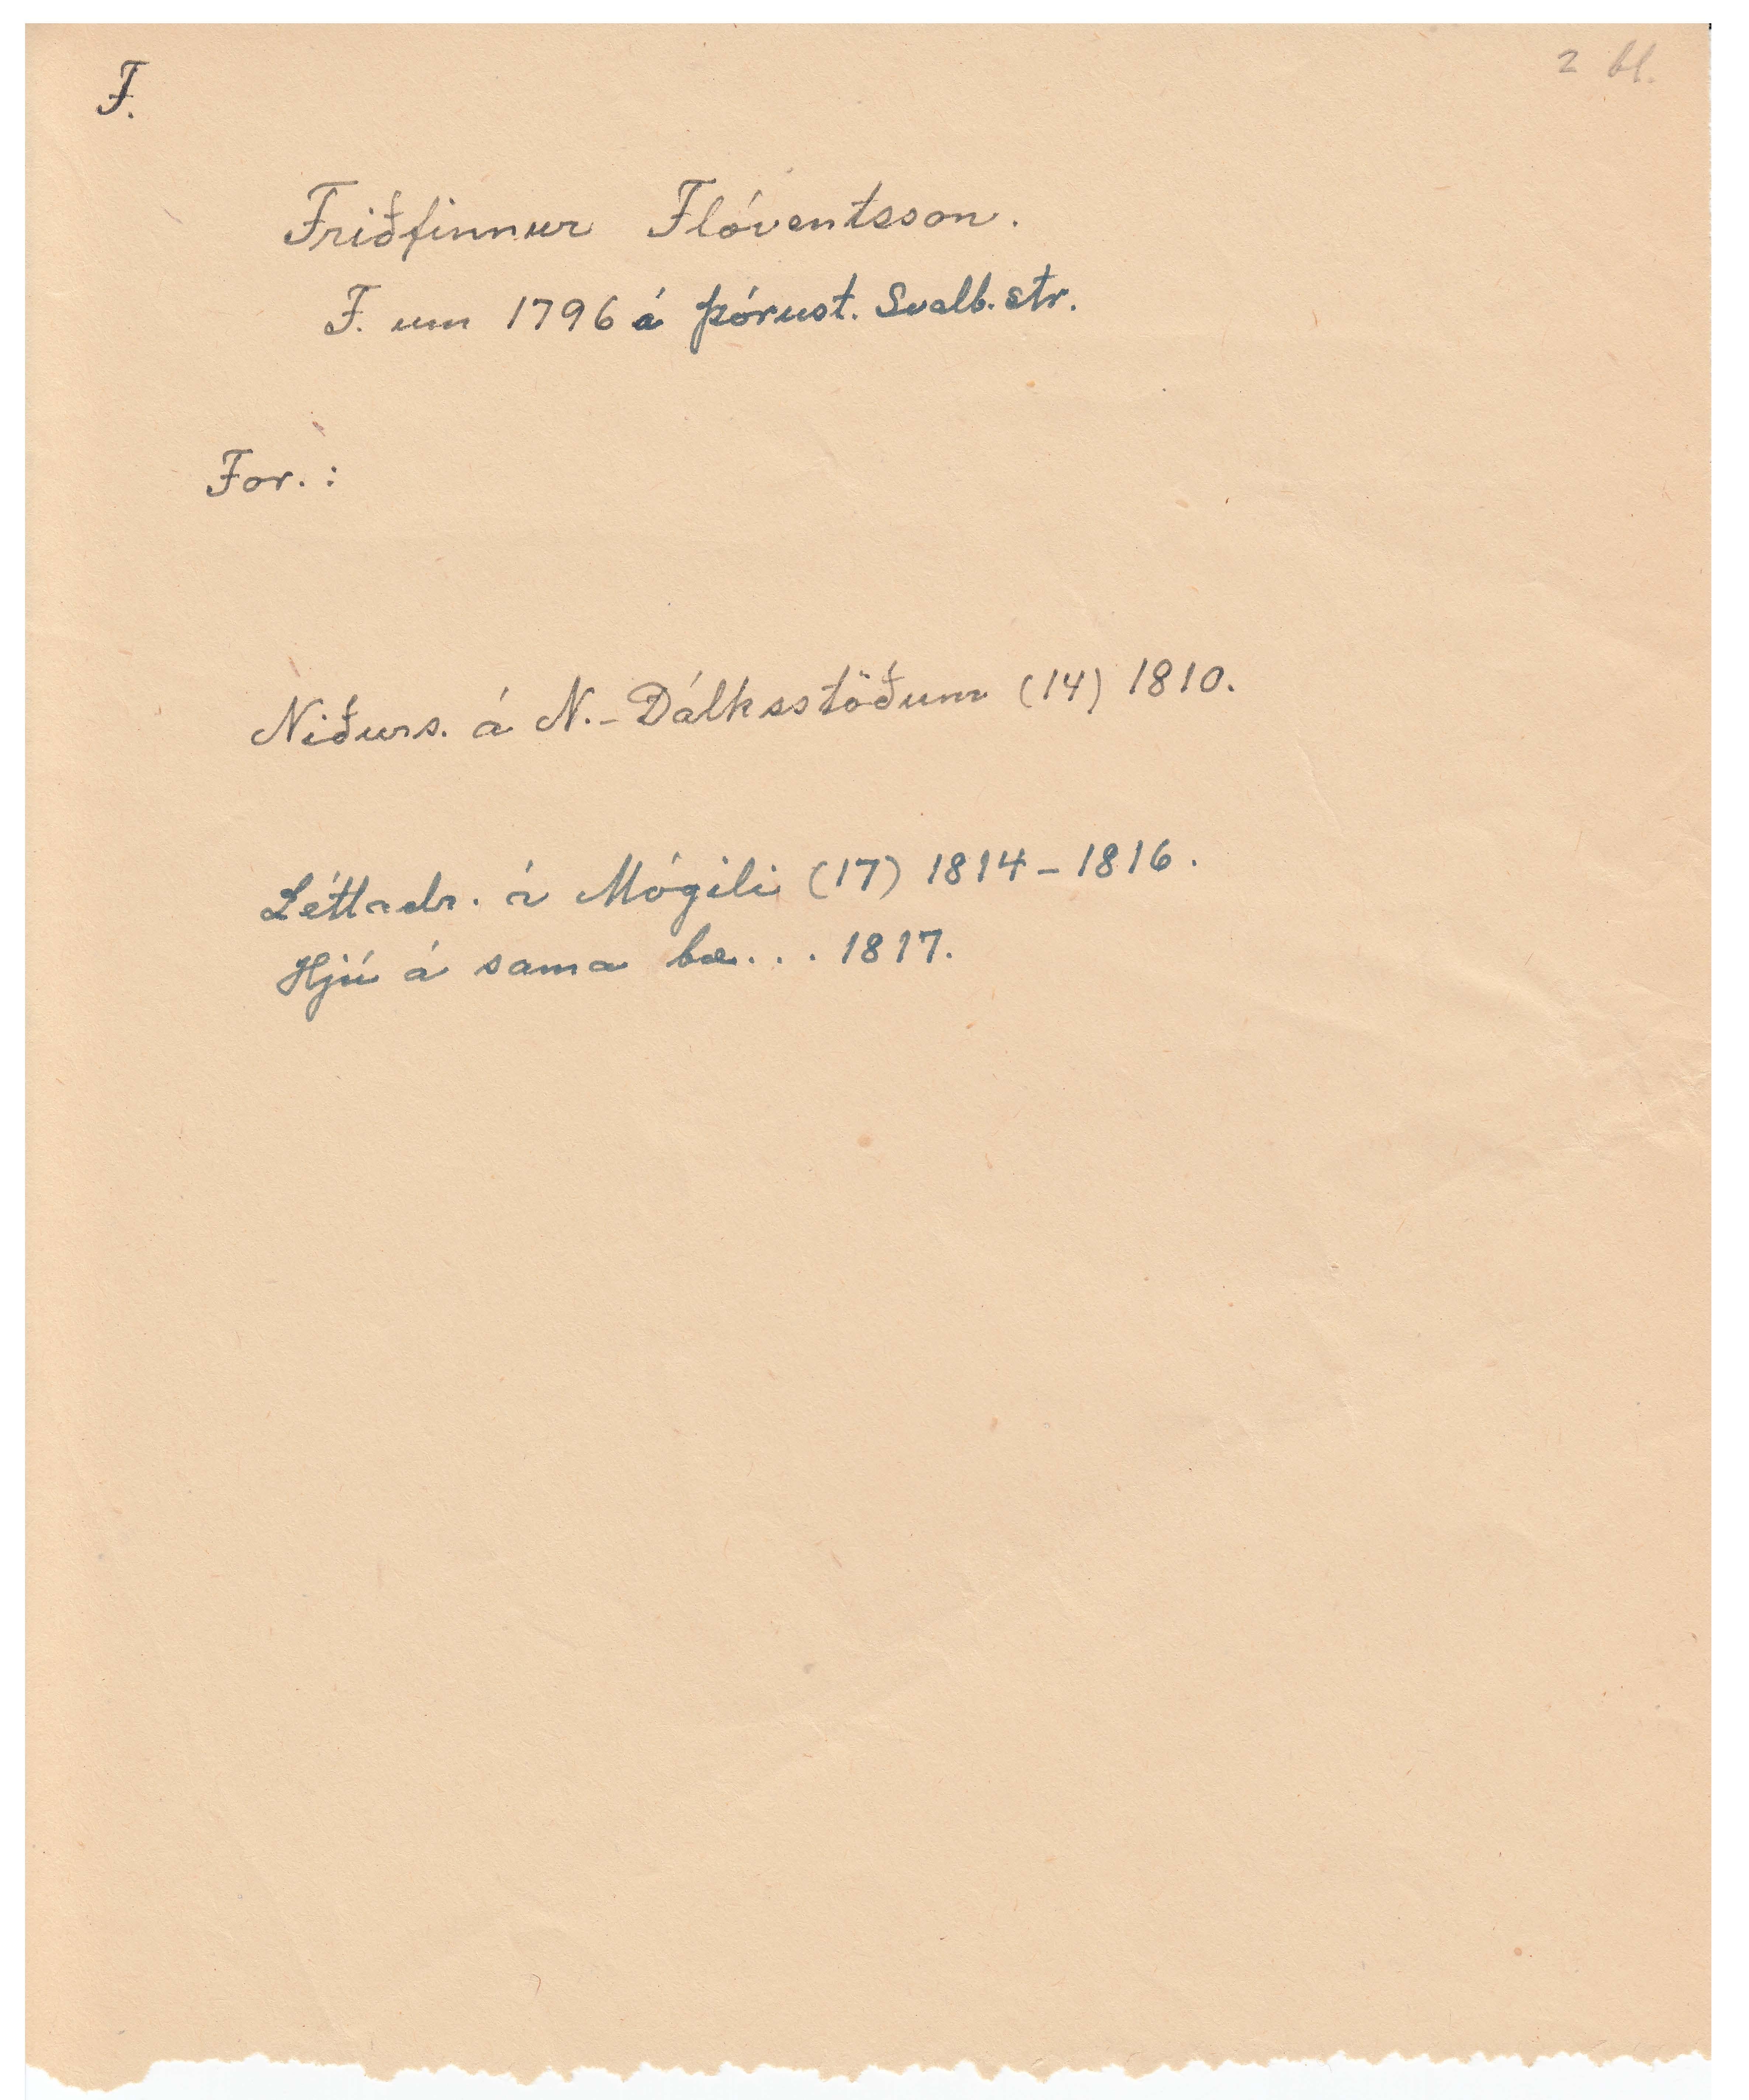 F.
2 bl.
Friðfinnur Flóventsson.
F. um 1796 á Þórust. Svalb.str.
For. :
Niðurs. á N.-Dálksstöðum (14) 1810.
Léttadr. á Mógili (17) 1814-1816.
Hjú á sama bæ... 1817.